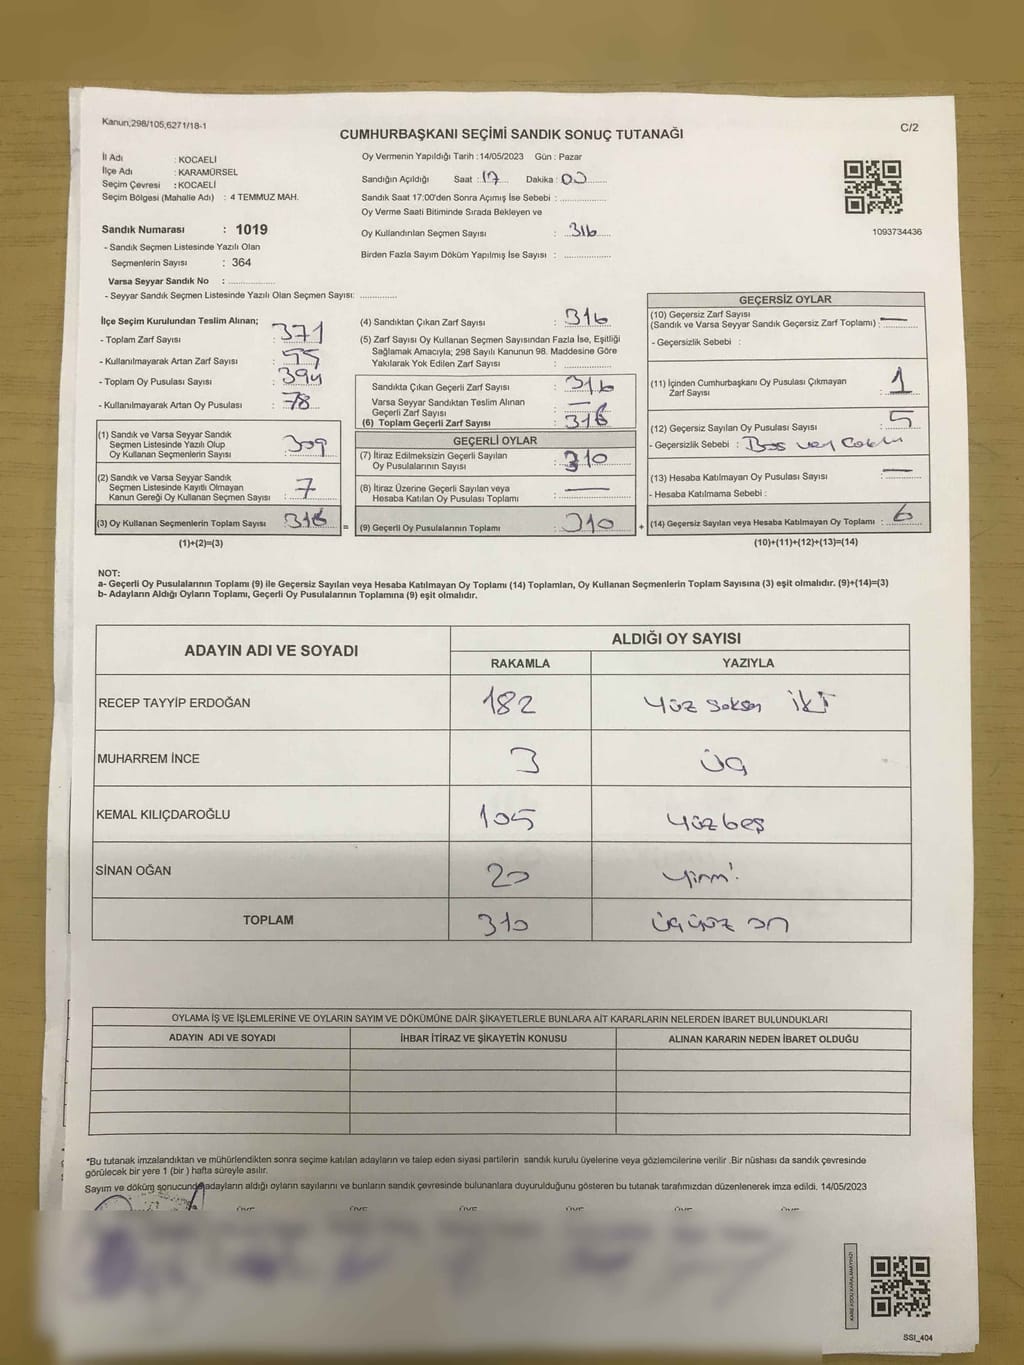 Kanun,298/105,6271/18-1
CUMHURBAŞKANI SEÇİMİ SANDIK SONUÇ TUTANAĞI
C/2
İl Adı : KOCAELİ
İlçe Adı : KARAMÜRSEL
Seçim Çevresi : KOCAELİ
Seçim Bölgesi (Mahalle Adı) : 4 TEMMUZ MAH.
Sandık Numarası : 1019
- Sandık Seçmen Listesinde Yazılı Olan
Seçmenlerin Sayısı : 364
Varsa Seyyar Sandık No : ....................
- Seyyar Sandık Seçmen Listesinde Yazılı Olan Seçmen Sayısı: ..............
Oy Vermenin Yapıldığı Tarih : 14/05/2023 Gün : Pazar
Sandığın Açıldığı Saat : 17 Dakika : 00
Sandık Saat 17:00'den Sonra Açımış İse Sebebi : ................
Oy Verme Saati Bitiminde Sırada Bekleyen ve
Oy Kullandırılan Seçmen Sayısı : 316
Birden Fazla Sayım Döküm Yapılmış İse Sayısı : ................
1093734436
İlçe Seçim Kurulundan Teslim Alınan;
- Toplam Zarf Sayısı : 371
- Kullanılmayarak Artan Zarf Sayısı : 55
- Toplam Oy Pusulası Sayısı : 394
- Kullanılmayarak Artan Oy Pusulası : 78
(1) Sandık ve Varsa Seyyar Sandık
Seçmen Listesinde Yazılı Olup
Oy Kullanan Seçmenlerin Sayısı : 309
(2) Sandık ve Varsa Seyyar Sandık
Seçmen Listesinde Kayıtlı Olmayan
Kanun Gereği Oy Kullanan Seçmen Sayısı : 7
(3) Oy Kullanan Seçmenlerin Toplam Sayısı : 316
(1)+(2)=(3)
=
(4) Sandıktan Çıkan Zarf Sayısı : 316
(5) Zarf Sayısı Oy Kullanan Seçmen Sayısından Fazla İse, Eşitliği
Sağlamak Amacıyla; 298 Sayılı Kanunun 98. Maddesine Göre
Yakılarak Yok Edilen Zarf Sayısı : ................
Sandıkta Çıkan Geçerli Zarf Sayısı : 316
Varsa Seyyar Sandıktan Teslim Alınan
Geçerli Zarf Sayısı : —
(6) Toplam Geçerli Zarf Sayısı : 316
GEÇERLİ OYLAR
(7) İtiraz Edilmeksizin Geçerli Sayılan
Oy Pusulalarının Sayısı : 310
(8) İtiraz Üzerine Geçerli Sayılan veya
Hesaba Katılan Oy Pusulası Toplamı : —
(9) Geçerli Oy Pusulalarının Toplamı : 310
+
GEÇERSİZ OYLAR
(10) Geçersiz Zarf Sayısı
(Sandık ve Varsa Seyyar Sandık Geçersiz Zarf Toplamı) : —
- Geçersizlik Sebebi :
(11) İçinden Cumhurbaşkanı Oy Pusulası Çıkmayan
Zarf Sayısı : 1
(12) Geçersiz Sayılan Oy Pusulası Sayısı : 5
- Geçersizlik Sebebi : Boş
(13) Hesaba Katılmayan Oy Pusulası Sayısı : —
- Hesaba Katılmama Sebebi :
(14) Geçersiz Sayılan veya Hesaba Katılmayan Oy Toplamı : 6
(10)+(11)+(12)+(13)=(14)
NOT:
a- Geçerli Oy Pusulalarının Toplamı (9) ile Geçersiz Sayılan veya Hesaba Katılmayan Oy Toplamı (14) Toplamları, Oy Kullanan Seçmenlerin Toplam Sayısına (3) eşit olmalıdır. (9)+(14)=(3)
b- Adayların Aldığı Oyların Toplamı, Geçerli Oy Pusulalarının Toplamına (9) eşit olmalıdır.
ADAYIN ADI VE SOYADI
ALDIĞI OY SAYISI
RAKAMLA YAZIYLA
RECEP TAYYİP ERDOĞAN 182 Yüz seksen iki
MUHARREM İNCE 3 üç
KEMAL KILIÇDAROĞLU 105 Yüzbeş
SİNAN OĞAN 20 Yirmi
TOPLAM 310 üçyüz on
OYLAMA İŞ VE İŞLEMLERİNE VE OYLARIN SAYIM VE DÖKÜMÜNE DAİR ŞİKAYETLERLE BUNLARA AİT KARARLARIN NELERDEN İBARET BULUNDUKLARI
ADAYIN ADI VE SOYADI İHBAR İTİRAZ VE ŞİKAYETİN KONUSU ALINAN KARARIN NEDEN İBARET OLDUĞU
*Bu tutanak imzalandıktan ve mühürlendikten sonra seçime katılan adayların ve talep eden siyasi partilerin sandık kurulu üyelerine veya gözlemcilerine verilir .Bir nüshası da sandık çevresinde
görülecek bir yere 1 (bir ) hafta süreyle asılır.
Sayım ve döküm sonucunda adayların aldığı oyların sayılarını ve bunların sandık çevresinde bulunanlara duyurulduğunu gösteren bu tutanak tarafımızdan düzenlenerek imza edildi. 14/05/2023
SSI_404